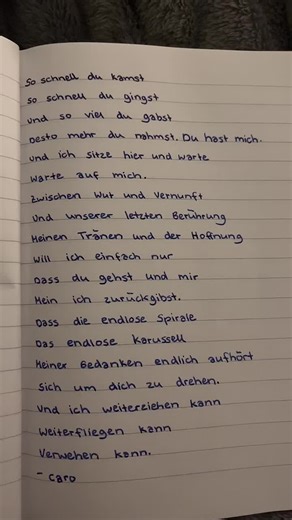 So schnell du kamst
so schnell du gingst
und so viel du gabst
Desto mehr du nahmst. Du hast mich.
und ich sitze hier und warte
warte auf mich.
Zwischen Wut und Vernunft
und unserer letzten Berührung
Meinen Tränen und der Hoffnung
Will ich einfach nur
Dass du gehst und mir
Mein ich zurückgibst.
Dass die endlose Spirale
Das endlose Karussell
Meiner Gedanken endlich aufhört
Sich um dich zu drehen.
Und ich weiterziehen kann
Weiterfliegen kann
Verwehen kann.
- Caro